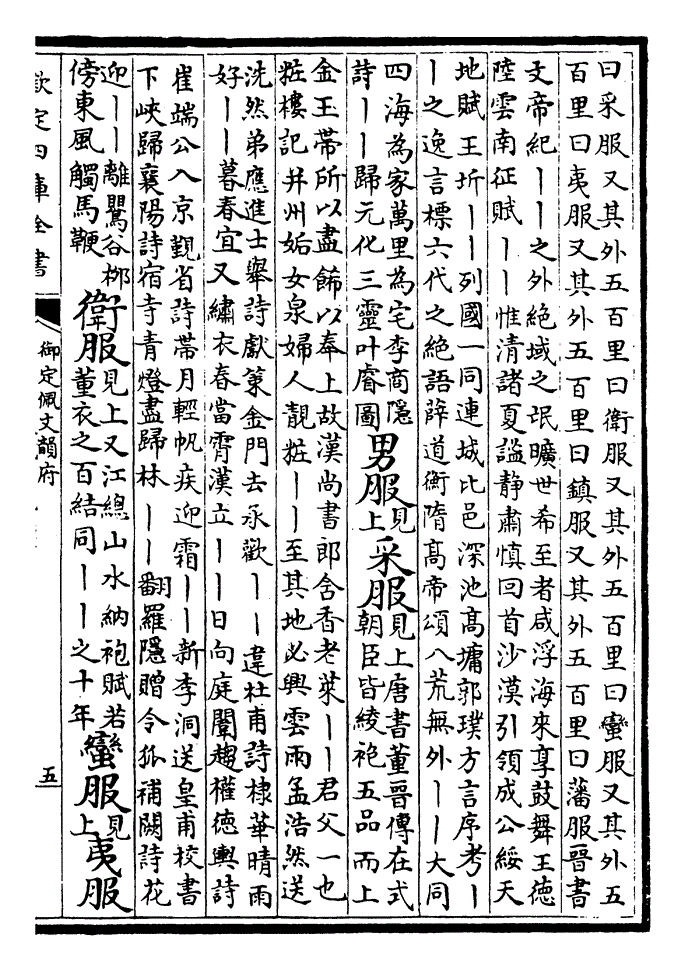 曰采服又其外五百里曰衛服又其外五百里曰蠻服又其外五
百里曰夷服又其外五百里曰鎮服又其外五百里曰藩服晉書
文帝紀丨丨之外絶域之氓曠世希至者咸浮海來享鼓舞王德
陸雲南征賦丨丨惟清諸夏謐静肅慎回首沙漠引領成公綏天
地賦王圻丨丨列國一同連城比邑深池髙墉郭璞方言序考丨
丨之逸言標六代之絶語薛道衡隋髙帝頌八荒無外丨丨大同
四海為家萬里為宅李商隱
詩丨丨歸元化三靈叶睿圖
男服見上
采服見上唐書董晉傳在式
朝臣皆綾袍五品而上
金玉帶所以盡飾以奉上故漢尚書郎含香老萊丨丨君父一也
粧樓記并州妬女泉婦人靚粧丨丨至其地必興雲雨孟浩然送
洗然弟應進士舉詩獻策金門去承歡丨丨違杜甫詩棣華晴雨
好丨丨暮春宜又繡衣春當霄漢立丨丨日向庭闈趨權德輿詩
崔端公入京覲省詩帶月輕帆疾迎霜丨丨新李洞送皇甫校書
下峽歸襄陽詩宿寺青燈盡歸林丨丨翻羅隱贈令狐補闕詩花
迎丨丨離鸎谷栁
傍東風觸馬鞭
衛服見上又江總山水納袍賦若
董衣之百結同丨丨之十年
蠻服見上
夷服
欽定四庫全書
御定佩文韻府
五